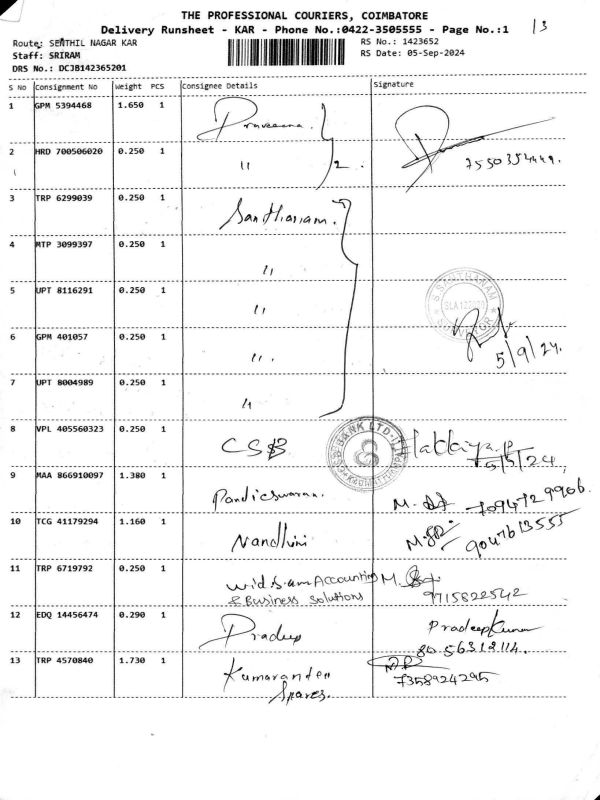 THE PROFESSIONAL COURIERS, COIMBATORE
Delivery Runsheet - KAR - Phone No.:0422-3505555 - Page No.:1
13
Route: SENTHIL NAGAR KAR
RS No.: 1423652
Staff: SRIRAM
RS Date: 05-Sep-2024
DRS No.: DCJB142365201
S No Consignment No Weight PCS Consignee Details Signature
1 GPM 5394468 1.650 1 Praveena.
2 HRD 700506020 0.250 1 " 2. 7550354449.
3 TRP 6299039 0.250 1
4 MTP 3099397 0.250 1 "
5 UPT 8116291 0.250 1 "
6 GPM 401057 0.250 1 " 5/9/24.
7 UPT 8004989 0.250 1 "
8 VPL 405560323 0.250 1 CSB 5/9/24,
9 MAA 866910097 1.380 1 Pandieswaran. 7094729906.
10 TCG 41179294 1.160 1 Nandhini 9047613555
11 TRP 6719792 0.250 1 Accounting
& Business Solutions 9715822542
12 EDQ 14456474 0.290 1 Pradeep PradeepKumar
80.56312114.
13 TRP 4570840 1.730 1 Kumaranden
Spares. 7358924295